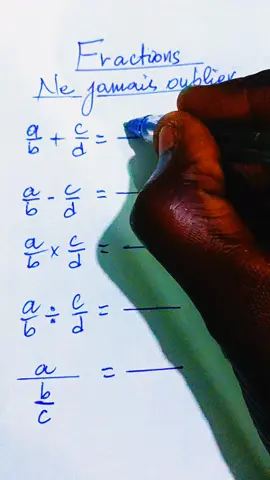 Fractions
Ne jamais oublier
a/b + c/d =
a/b - c/d =
a/b × c/d =
a/b ÷ c/d =
a/(b/c) =